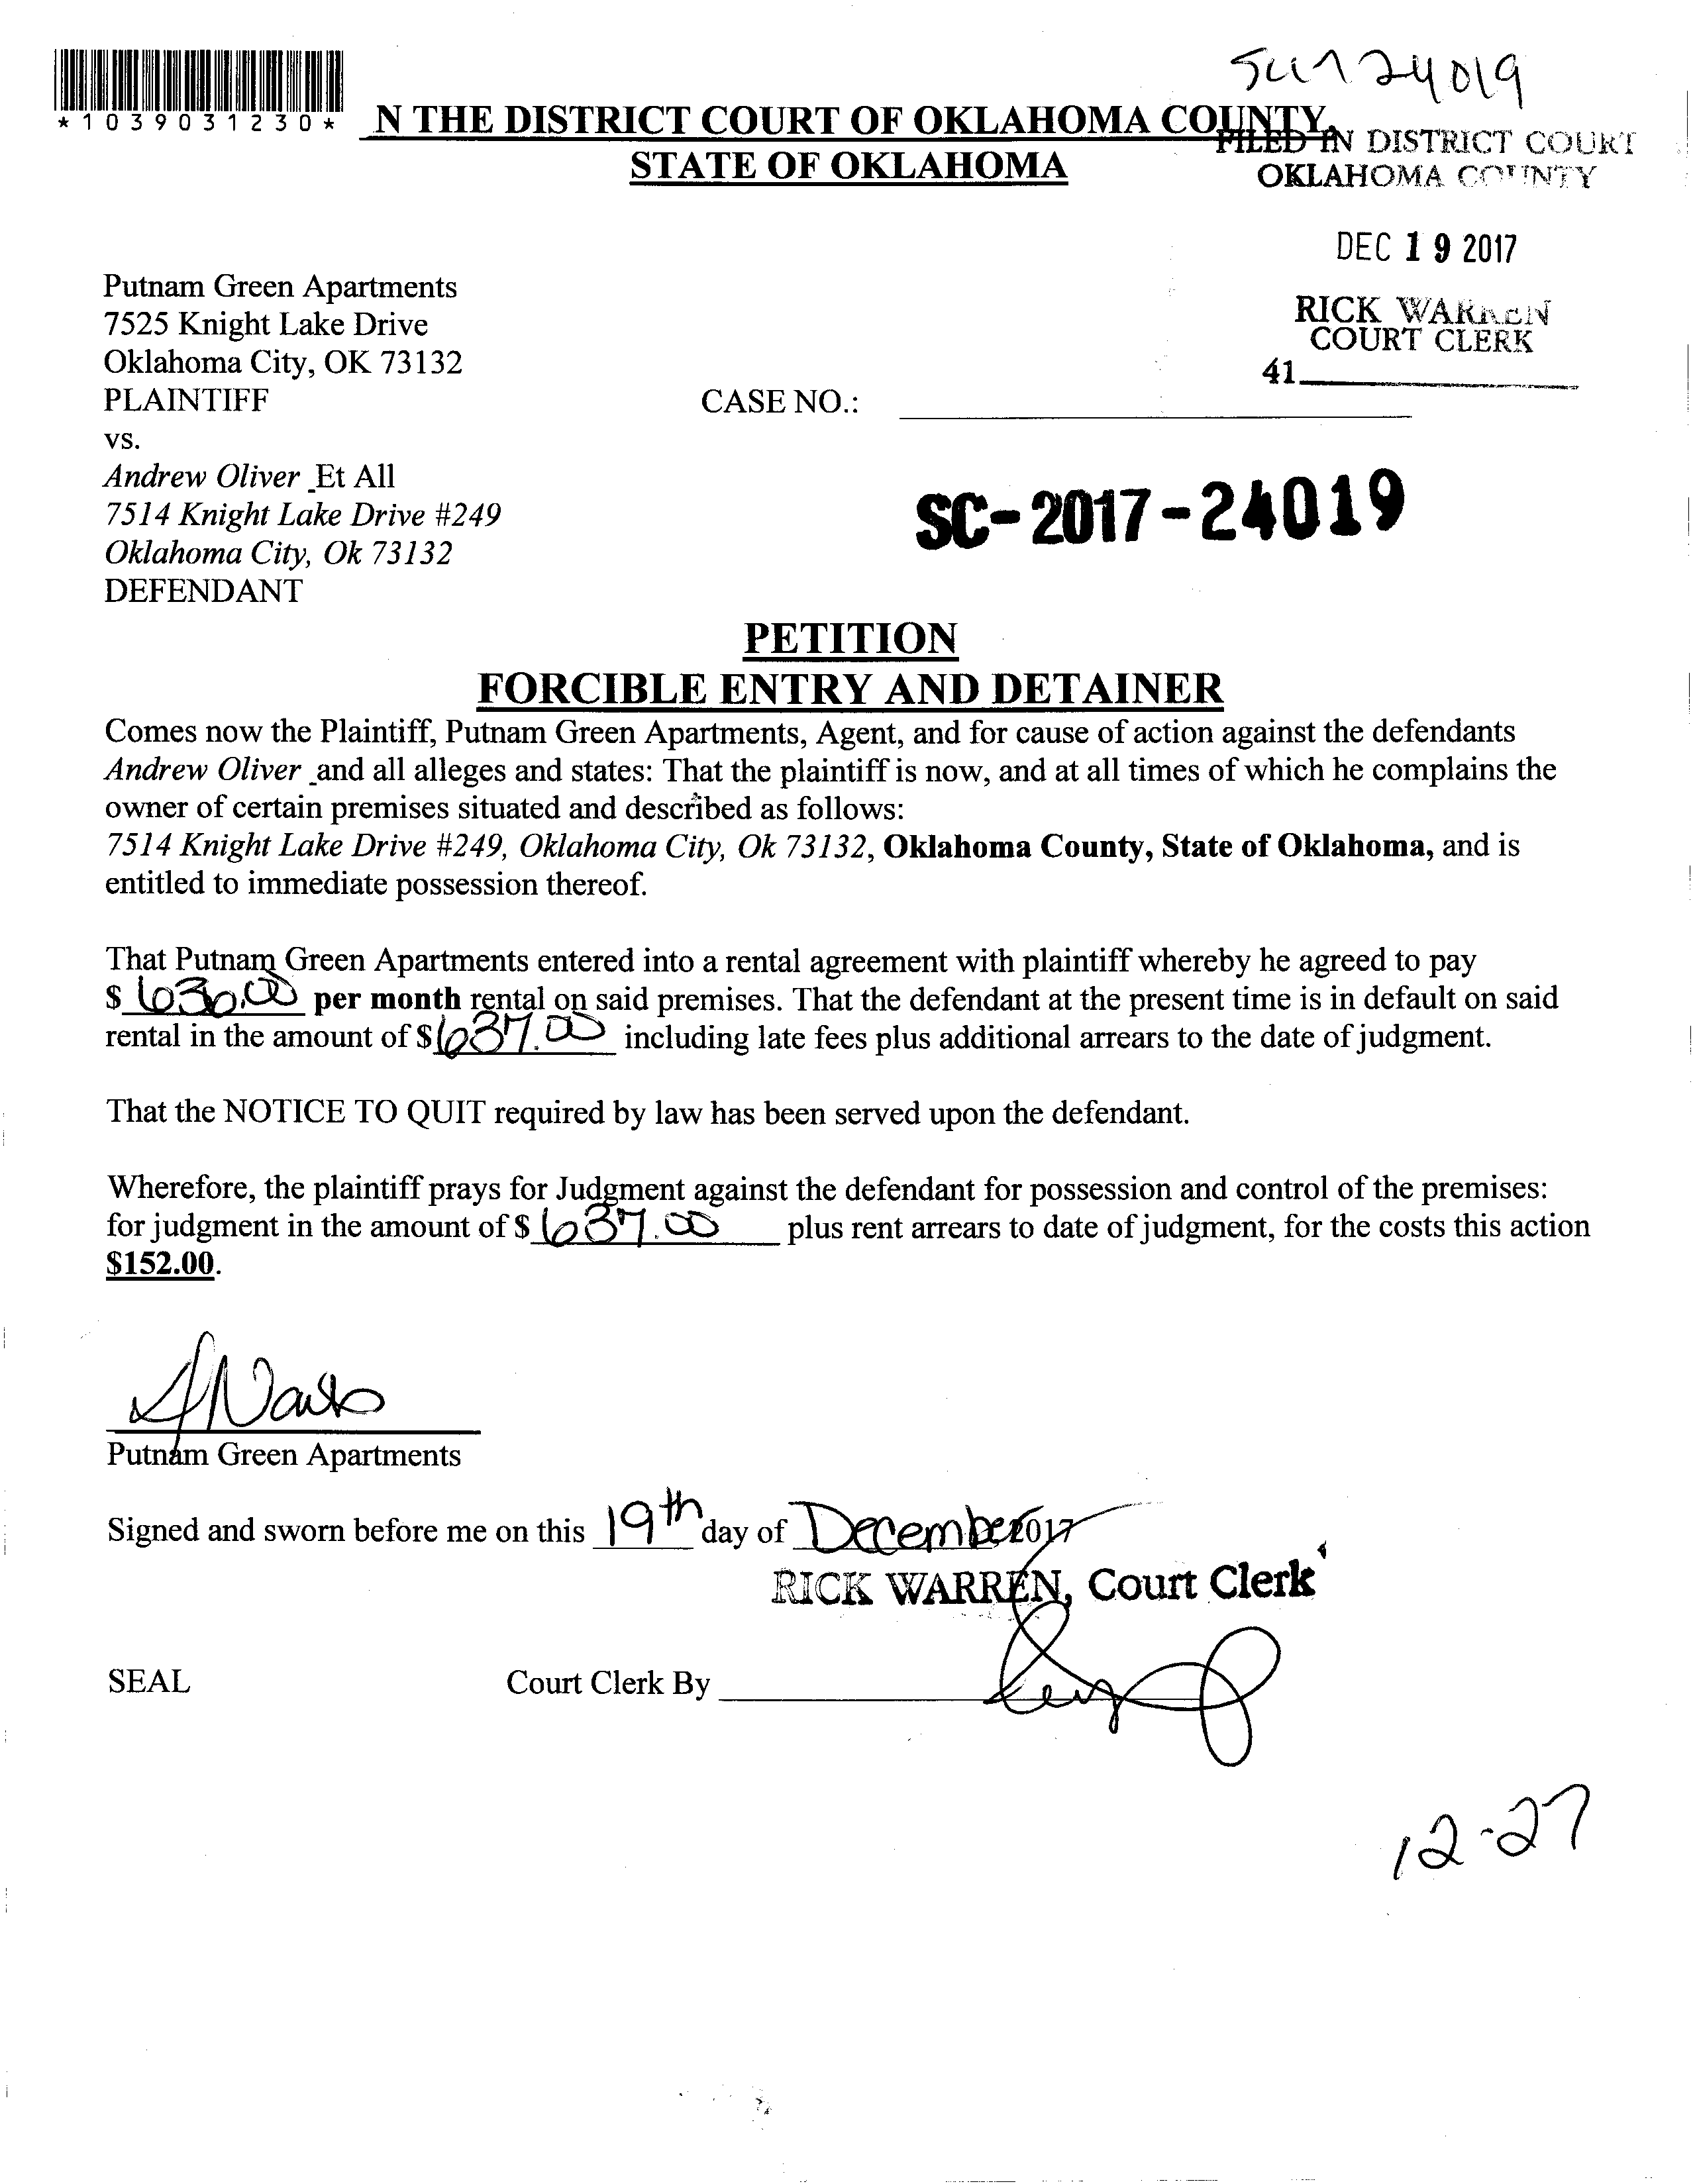 SC1724019
*1039031230*
N THE DISTRICT COURT OF OKLAHOMA COUNTY
STATE OF OKLAHOMA
FILED IN DISTRICT COURT
OKLAHOMA COUNTY
DEC 19 2017
RICK WARREN
COURT CLERK
41
Putnam Green Apartments
7525 Knight Lake Drive
Oklahoma City, OK 73132
PLAINTIFF
CASE NO.:
vs.
Andrew Oliver Et All
7514 Knight Lake Drive #249
Oklahoma City, Ok 73132
DEFENDANT
SC-2017-24019
PETITION
FORCIBLE ENTRY AND DETAINER
Comes now the Plaintiff, Putnam Green Apartments, Agent, and for cause of action against the defendants
Andrew Oliver and all alleges and states: That the plaintiff is now, and at all times of which he complains the
owner of certain premises situated and described as follows:
7514 Knight Lake Drive #249, Oklahoma City, Ok 73132, Oklahoma County, State of Oklahoma, and is
entitled to immediate possession thereof.
That Putnam Green Apartments entered into a rental agreement with plaintiff whereby he agreed to pay
$ 630.00 per month rental on said premises. That the defendant at the present time is in default on said
rental in the amount of $637.00 including late fees plus additional arrears to the date of judgment.
That the NOTICE TO QUIT required by law has been served upon the defendant.
Wherefore, the plaintiff prays for Judgment against the defendant for possession and control of the premises:
for judgment in the amount of $ 637.00 plus rent arrears to date of judgment, for the costs this action
$152.00.
Putnam Green Apartments
Signed and sworn before me on this 19th day of December, 2017
RICK WARREN, Court Clerk
SEAL
Court Clerk By
12-27